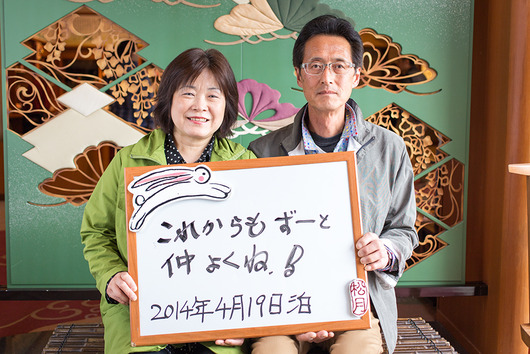 これからもずーと
仲よくね。!!
2014年4月19日泊
松月